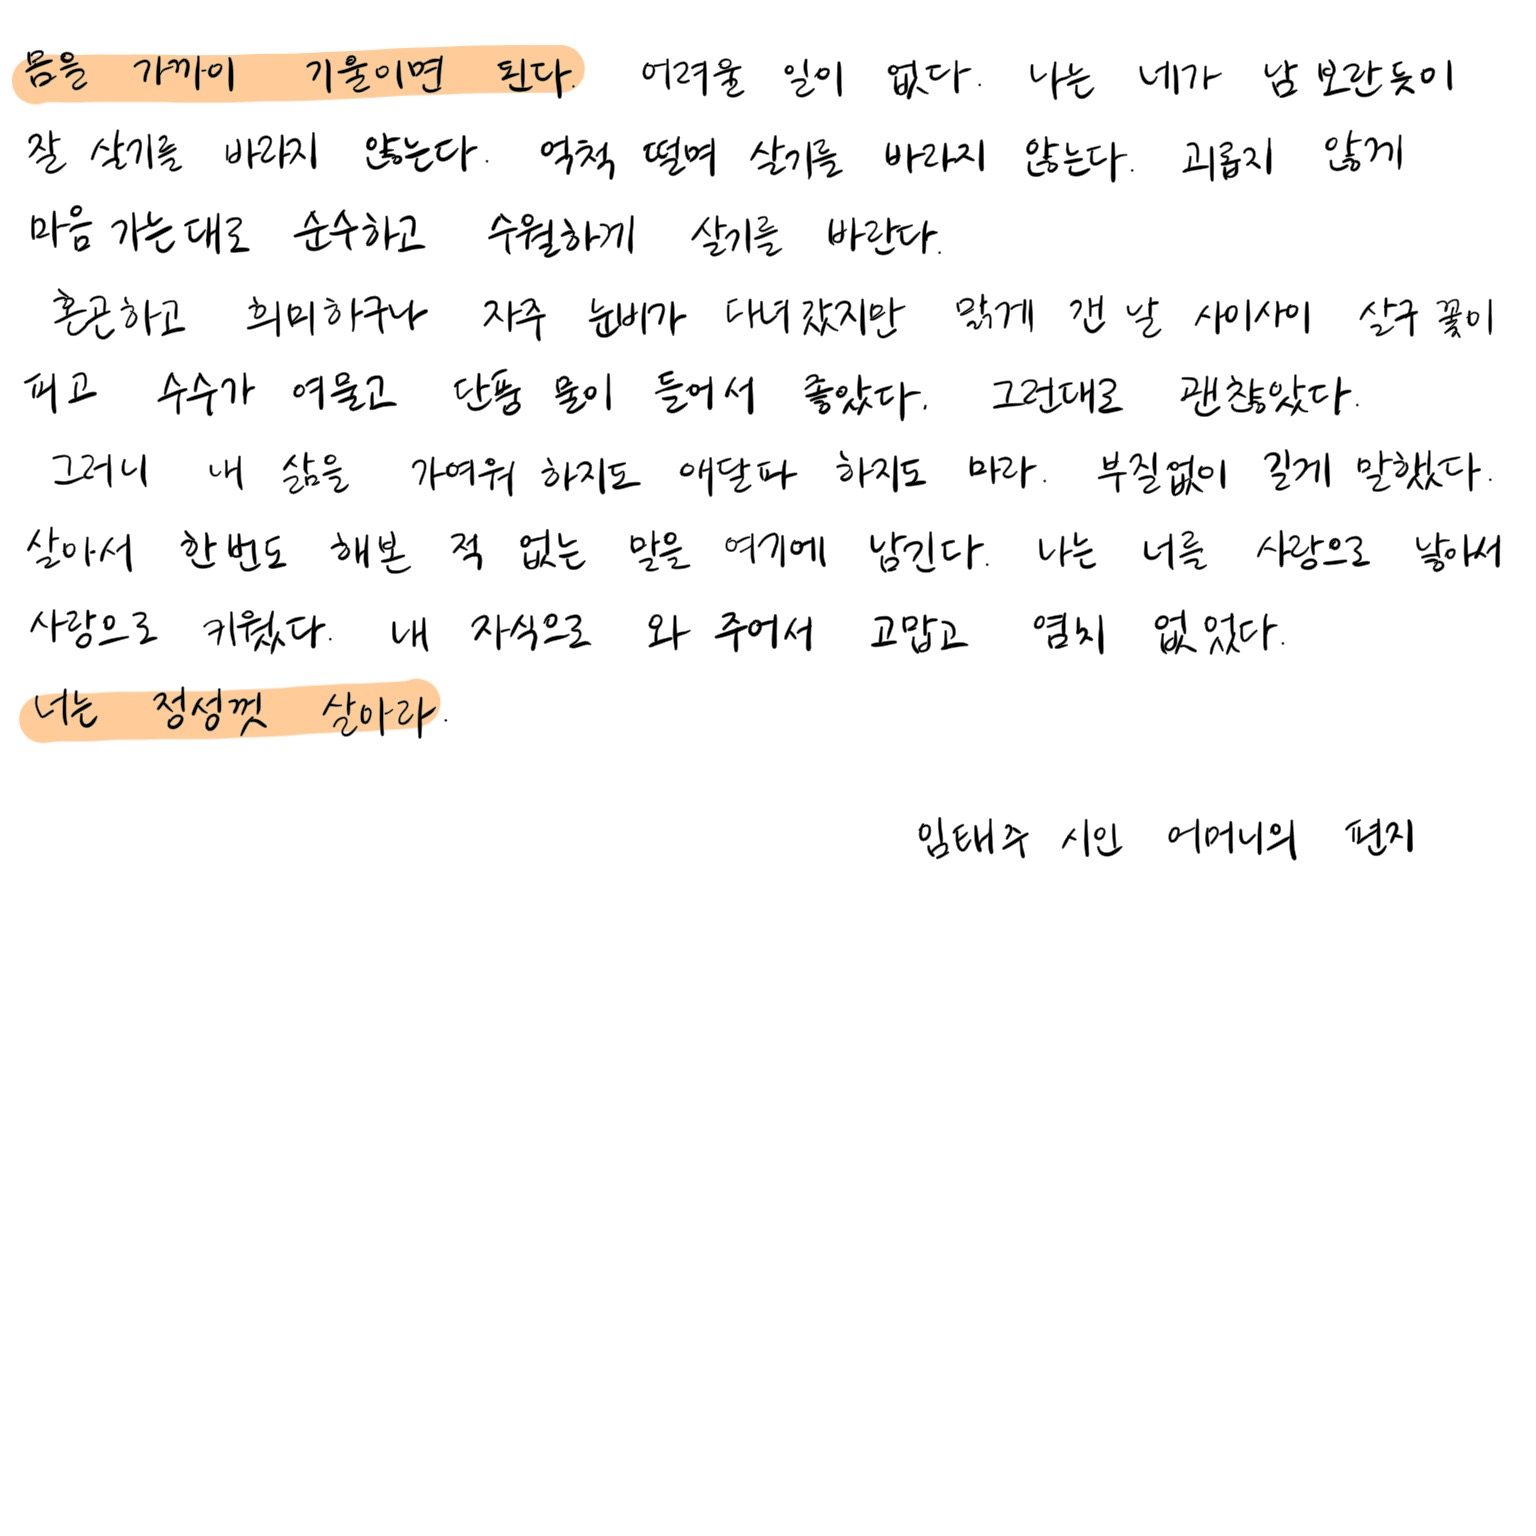 몸을 가까이 기울이면 된다. 어려울 일이 없다. 나는 네가 남 보란듯이
잘 살기를 바라지 않는다. 억척 떨며 살기를 바라지 않는다. 괴롭지 않게
마음 가는대로 순수하고 수월하게 살기를 바란다.
혼곤하고 희미하구나 자주 눈비가 다녀갔지만 맑게 갠 날 사이사이 살구 꽃이
피고 수수가 여물고 단풍 물이 들어서 좋았다. 그런대로 괜찮았다.
그러니 내 삶을 가여워 하지도 애달파 하지도 마라. 부질없이 길게 말했다.
살아서 한번도 해본 적 없는 말을 여기에 남긴다. 나는 너를 사랑으로 낳아서
사랑으로 키웠다. 내 자식으로 와 주어서 고맙고 염치 없었다.
너는 정성껏 살아라.
임태주 시인 어머니의 편지